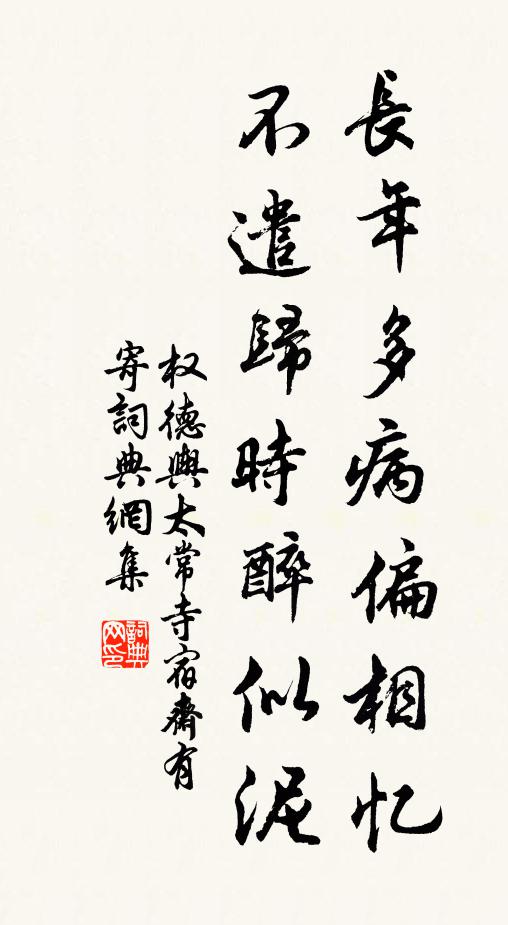 長年多病偏相忆
不遣歸時醉似泥
权德輿太常寺宿齋有
寄詞典網集
詞典
网印